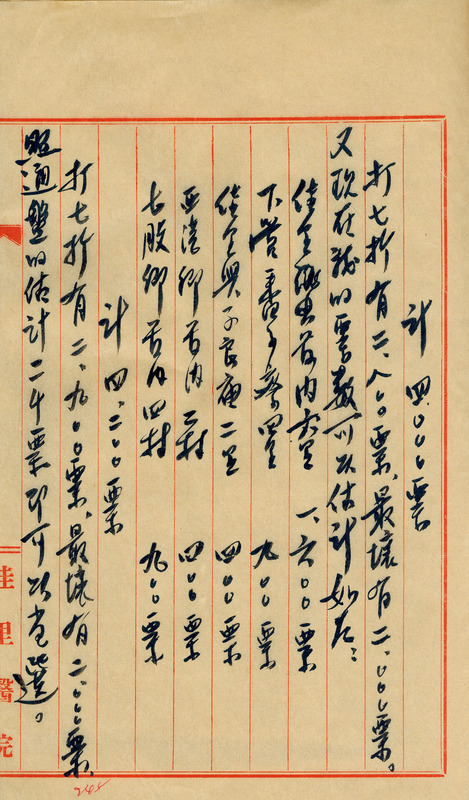 計 四.〇〇〇票
打七折有二、八〇〇票、最壞有二.〇〇〇票。
又現在我的票數可以估計如左:
佳里 及 管內六里 一、六〇〇票
下營 四里 九〇〇票
佳里興 子良廟 二里 四〇〇票
西港鄉管內 二村 四〇〇票
七股鄉管內四村 九〇〇票
計 四.二〇〇票
打七折有二、九〇〇票、最壞有二.〇〇〇票、
照通盤的估計二千票即可以當選。
佳里醫院
244